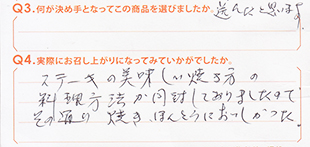 Q3.何が決め手となってこの商品を選びましたか。
送んだと思います
Q4.実際にお召し上がりになってみていかがでしたか。
ステーキの美味しい焼き方の
料理方法が同封しておりましたので
その通り焼き、ほんとうにおいしかった